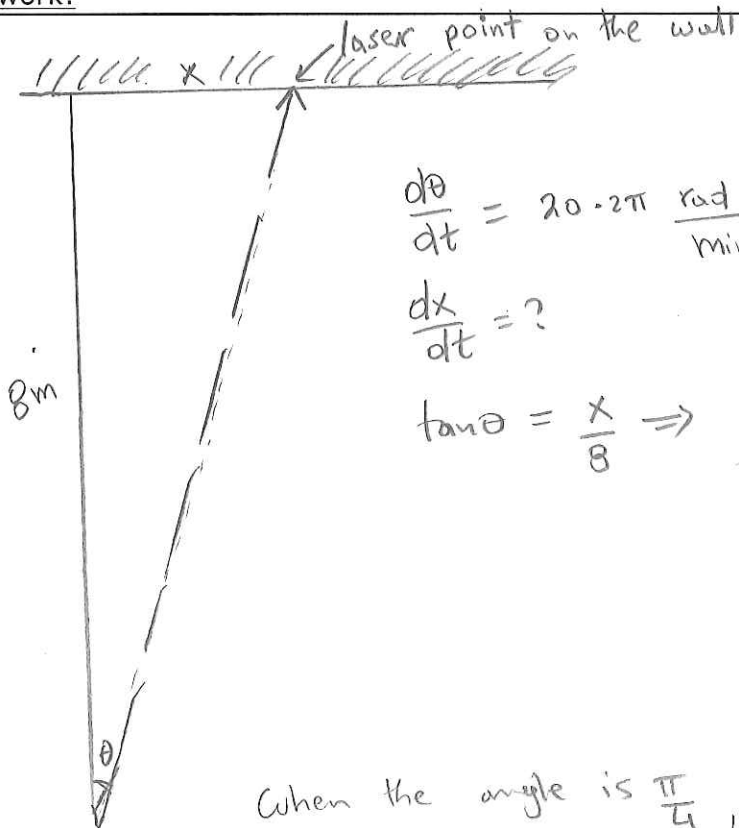 work:
laser point on the wall
x
dθ/dt = 20·2π rad/min
dx/dt = ?
8m
tanθ = x/8 ⇒
θ
When the angle is π/4,